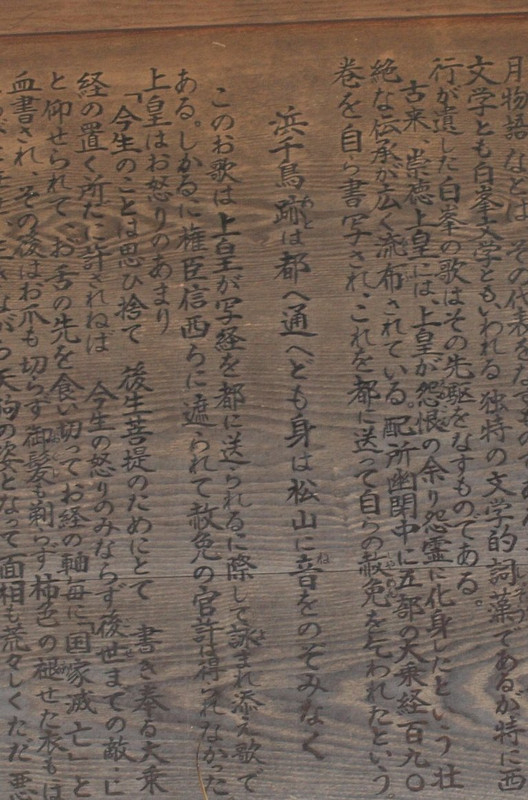 月物語などは、その代表
文学とも白峯文学ともいわれる独特の文学的詞藻であるが特に西
行が遺した白峯の歌はその先駆をなすものである。
古来、崇徳上皇には、上皇が怨恨の余り怨霊に化身したという壮
絶な伝承が広く流布されている。配所幽閉中に五部の大乗経百九〇
巻を自ら書写され、これを都に送って自らの赦免を乞われたという。
浜千鳥跡は都へ通へども身は松山に音をのぞみなく
このお歌は上皇が写経を都に送られるに際して詠まれ添え歌で
ある。しかるに権臣信西らに遮られて赦免の官許は得られなかった
上皇はお怒りのあまり
「今生のことは思ひ捨て 後生菩提のためにとて 書き奉る大乗
経の置く所だに許されねは 今生の怒りのみならず後世までの敵
と仰せられて、お舌の先を食い切ってお経の軸毎に「国家滅亡」と
血書され、その後はお爪も切らず御髪も剃らず柿色の褪せた衣もは
ながら天狗の姿となって面相も荒々しくただ悪